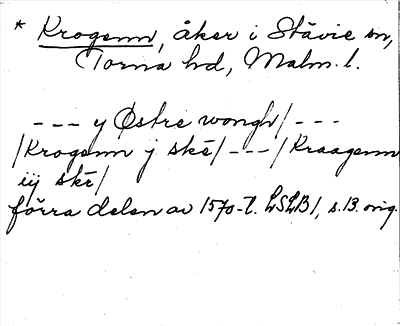 * Krogenn, åker i Stävie sn,
Torna hd, Malm. l.
--- y Østre wongh/ ---
/Krogenn j skě/ --- /Kraagenn
iij skě/
förra delen av 1570-t. LSLB1, s. 13. orig.